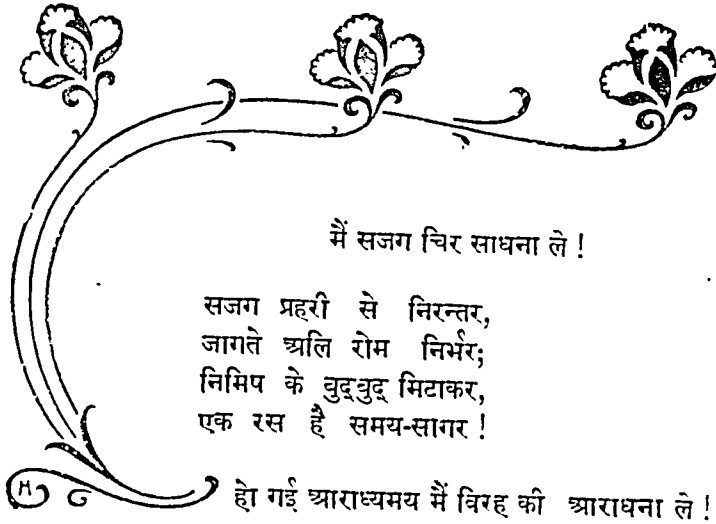 मैं सजग चिर साधना ले !
सजग प्रहरी से निरन्तर,
जागते अलि रोम निर्भर;
निमिप के वुद्वुद् मिटाकर,
एक रस है समय-सागर !
हो गई आराध्यमय मैं विरह की आराधना ले !